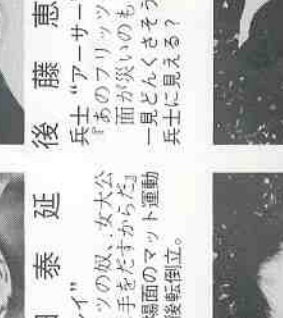 後藤恵
兵士“アーサー”
『あのフリッツ
面が災いのも
一見どんくさそう
兵士に見える?
泰延
イ”
ツの奴、女大公
手をだすからだ』
場面のマット運動
後転倒立。